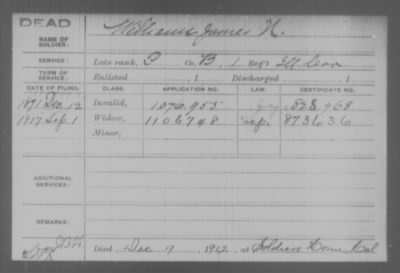 DEAD
NAME OF SOLDIER: Williams, James H.
SERVICE: Late rank, P Co. B, 1, Reg't Ill Cav
TERM OF SERVICE: Enlisted , 1 Discharged , 1
DATE OF FILING. CLASS. APPLICATION NO. LAW. CERTIFICATE NO.
1891 Dec. 12 Invalid, 1076.955 828.968
1917 Sep. 1 Widow, 1106748 Sep. 873636
Minor,
ADDITIONAL SERVICES:
REMARKS:
Died Dec 9, 1912, at Soldiers Home, Cal